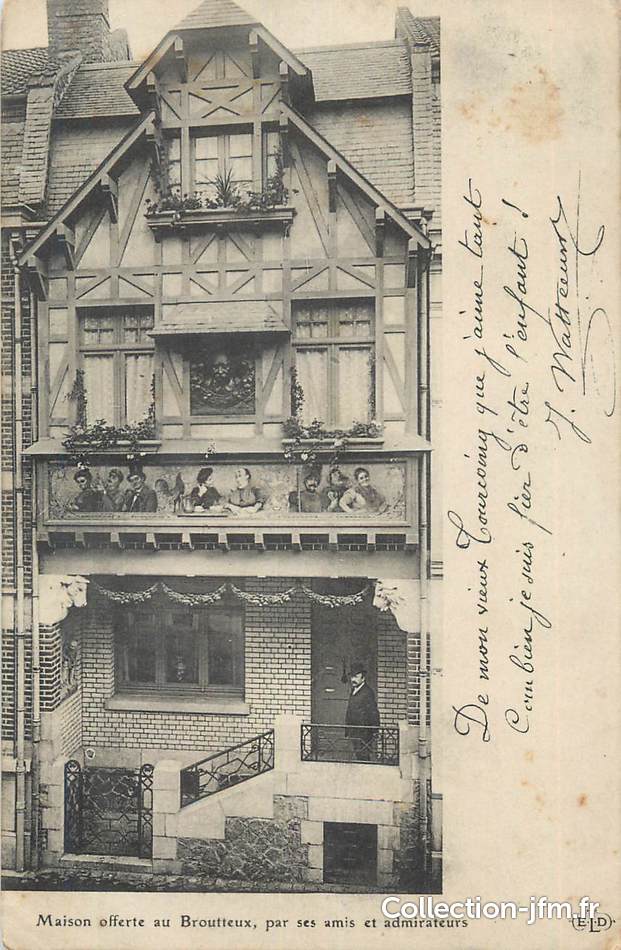 De mon vieux Tourcoing que j'aime tant
Combien je suis fier d'être l'enfant !
J. Watteeuw
Maison offerte au Broutteux, par ses amis et admirateurs
E.L.D.
Collection-jfm.fr